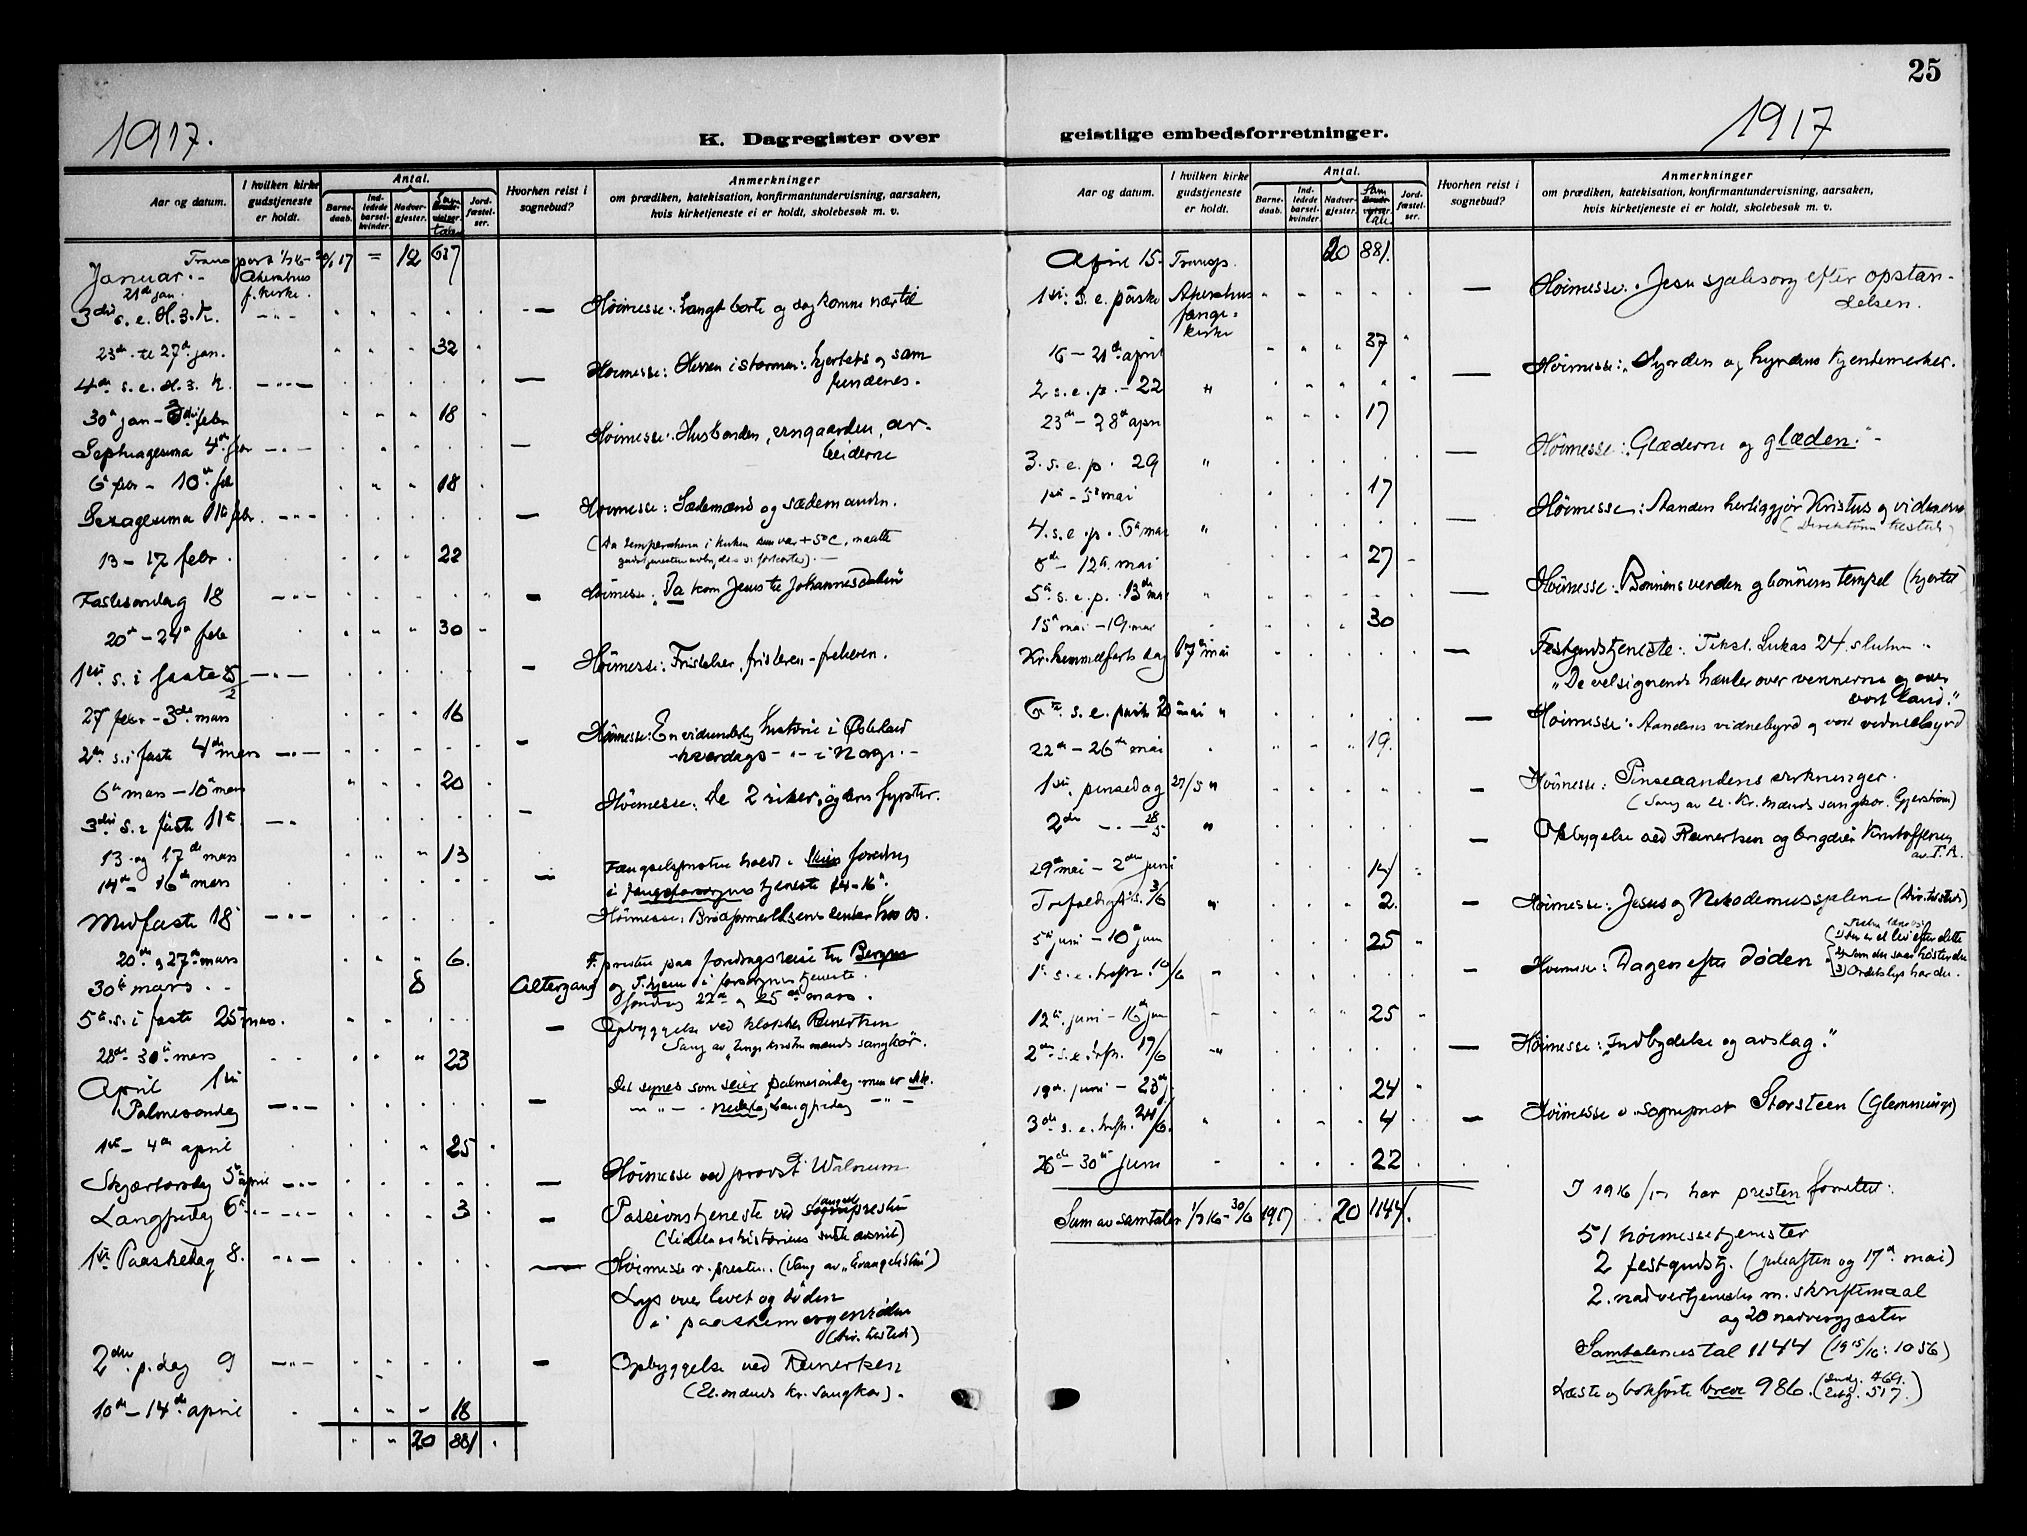 25
1917.
K. Dagregister over
geistlige embedsforretninger.
1917
Aar og datum.
I hvilken kirke gudstjeneste er holdt.
Antal.
Barne-daab.
Ind-ledede barsel-kvinder.
Nadver-gjester.
Sam tale
Jord-fæstel-ser.
Hvorhen reist i sognebud?
Anmerkninger
om prædiken, katekisation, konfirmantundervisning, aarsaken,
hvis kirketjeneste ei er holdt, skolebesøk m. v.
Transport 1/7 16 - 17 = 12 637
Januar.- Akershus
21de jan. f. kirke.
3die s. e. H. 3. K. - " - — Høimesse: Langt borte og dog komme nær til
23de til 27de jan. 32
4de s. e. H. 3. K. — " — — Høimesse: Herren i stormen: hjertets og sam
fundenes.
30te jan - 3die febr 18
Septuagesima 4de febr — " — — Høimesse: Husbonden, vingaarden, ar-
beiderne
6te febr - 10de feb 18
Sexagesima 11te febr. - " - — Høimesse: Sædemænd og sædemanden.
(Da temperaturen i kirken var +5° C, maatte
gudstjenesten forkortes). —
13 - 17 febr. 22
Fastesøndag 18 — " — — Høimesse: "Da kom Jesus til Johannes Døberen"
20de - 24de feb 30
1ste s. i faste 25/2 — " — — Høimesse: Fristelser, fristeren - frelseren.
27de febr - 3die mars 16
2den s. i faste 4de mars — " — — Høimesse: En vidunderlig historie i Østerland
- hverdags - " - i Norge. -
6te mars - 10de mars 20
3die s. i faste 11te — " — — Høimesse: De 2 riker, og deres fyrster.
13 og 17de mars 13
14de - 16de mars — Fængselspresten holdt i Skien foredrag
i fangeforsorgens tjeneste 14-16de.
Midfaste 18de — " — Høimesse: Brødformerelsens under hos os.
20de og 27de mars 6. F. presten paa foredragsreise til Bergen
30te mars. 8 Altergang og i forsorgens tjeneste
søndag 22de og 25de mars.
5te s. i faste 25de mars. — Opbyggelse ved klokker Reinertsen
Sang av "Unge kristne mænds sangkor".
28de - 30te mars 23
April 1ste
Palmesøndag — " — — Det synes som seier palmesøndag - men er ikke.
— " — " nederlag langfredag — " —
1ste - 4de april 25
Skjærtorsdag 5te april — " — — Høimesse ved provst Walnum
Langfredag 6te — " — 3 — Passionstjeneste ved fangepresten
(Lidelseshistoriens siste avsnit)
1ste Paaskedag 8. — " — — Høimesse v. presten. (Sang av "Evangelisten")
Lys over livet og døden
i paaskemorgenrøden
(dir. tilsted)
2den p. dag 9 — " — — Opbyggelse ved Reinertsen
(El. mænds kr. sangkor).
10de - 14de april 18
20 881
Aar og datum.
I hvilken kirke gudstjeneste er holdt.
Antal.
Barne-daab.
Ind-ledede barsel-kvinder.
Nadver-gjester.
Sam tale.
Jord-fæstel-ser.
Hvorhen reist i sognebud?
Anmerkninger
om prædiken, katekisation, konfirmantundervisning, aarsaken,
hvis kirketjeneste ei er holdt, skolebesøk m. v.
April 15. Transp. 20 881.
1ste s. e. påske Akershus fænge-kirke — Høimesse: Jesu sjælesorg efter opstan-
delsen.
16 - 21de april 37
2 s. e. p. - 22 " — Høimesse: "Hyrden og hyrdens kjendemerker.
23de - 28de apr 17
3. s. e. p. 29 " — Høimesse: "Glæderne og glæden." -
1ste - 5te mai 17
4. s. e. p. 6te mai " — Høimesse: Aanden herliggjør Kristus og vidnerne
(Direktøren tilstede)
8de - 12te mai 27
5te s. e. p. 13de mai " — Høimesse: Bønnens verden og bønnens tempel (hjertet)
15de mai - 19 mai 30
Kr. himmelfarts dag 17de mai — Festgudstjeneste: Tekst. Lukas 24 slutn "
"De velsignende hænder over vennerne og over
vort land."
6te s. e. paaske 20 mai " — Høimesse: Aandens vidnebyrd og vort vidnesbyrd
22de - 26de mai 19.
1ste pinsedag 27/5 " — Høimesse: Pinseaandens virkninger.
(Sang av El. Kr. mænds sangkor. Gjerstrøm)
2den — " — 28/5 " — Opbyggelse ved Reinertsen og brigader Kristoffersen
av F. A.
29de mai - 2den juni 14
Trefoldighets. 3/6 " 2. — Høimesse: Jesus og Nikodemussjælene (Dir. tilsted)
5te juni - 10de juni 25
1. s. e. trefn. 10/6 " — Høimesse: Dagen efter døden
1) der er et liv efter dette
2) Som du saar høster du
3) Ordets lys har du.
12te juni - 16de jun 25
2den s. e. trefn. 17/6 — " — Høimesse: "Indbydelse og avslag."
19de juni - 23de 24
3die s. e. trefn. 24/6. " 4 — Høimesse v sogneprest Storsteen (Glemminge)
26de - 30te Juni 22
Sum av samtaler 1/7 16 - 30/6 1917 20 1144.
I 1916/17 har presten forrettet:
51 høimessetjenester
2 festgudstj. (juleaften og 17de mai)
2. nadvertjenester m. skriftemaal
og 20 nadvergjæster
Samtalernes tal 1144 (1915/16: 1056)
Læste og bokførte breve 986. (Indg. 469. Utg. 517.)